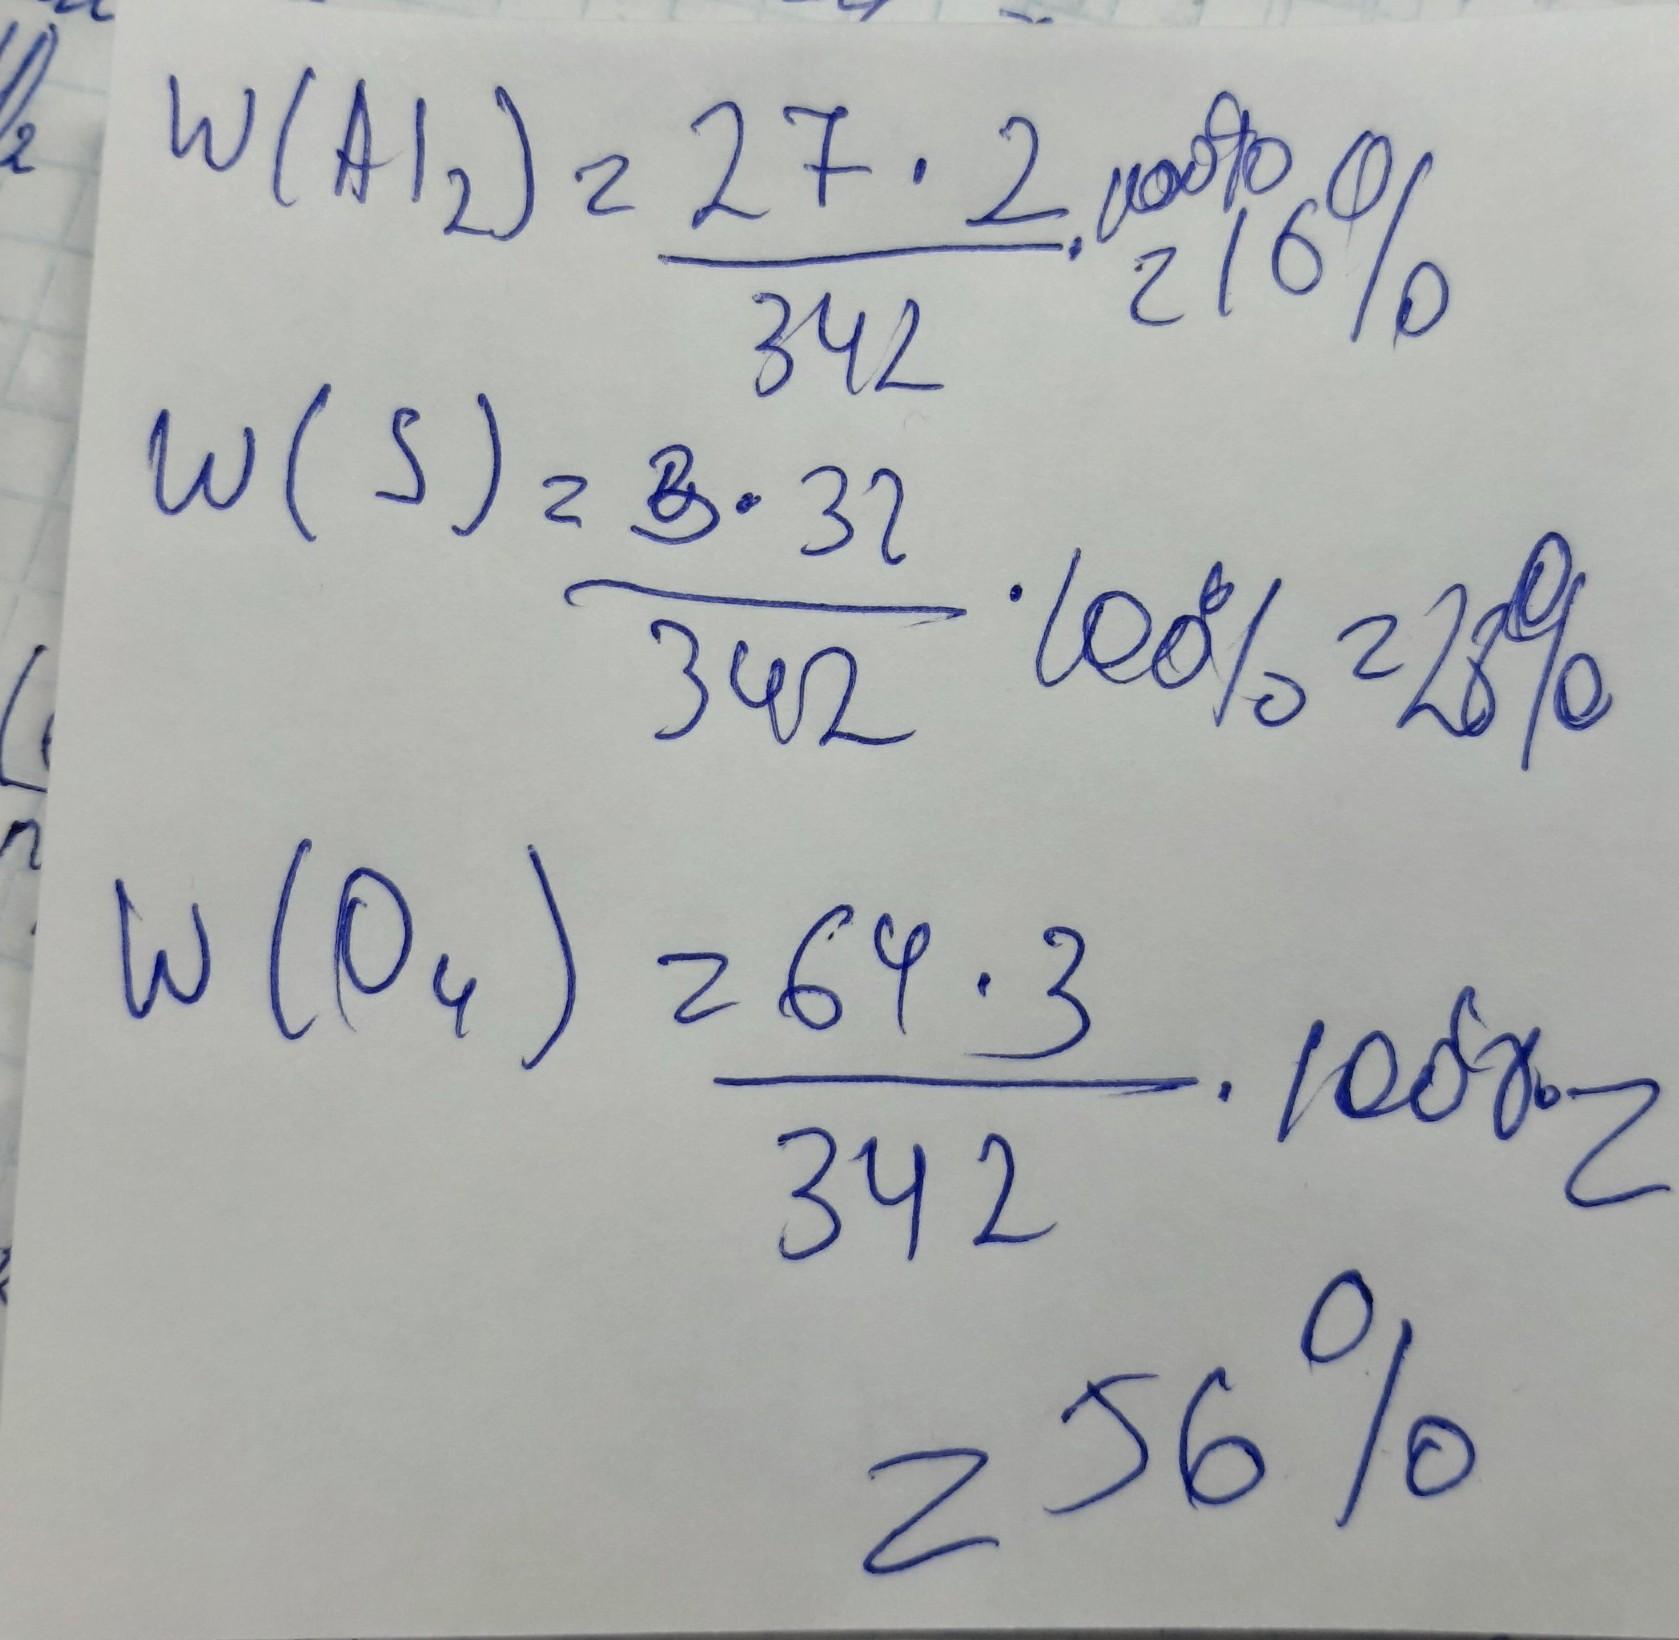 W(Al₂) = 27 · 2 / 342 · 100% = 16%
W(S) = 3 · 32 / 342 · 100% = 28%
W(O₄) = 64 · 3 / 342 · 100% =
= 56%